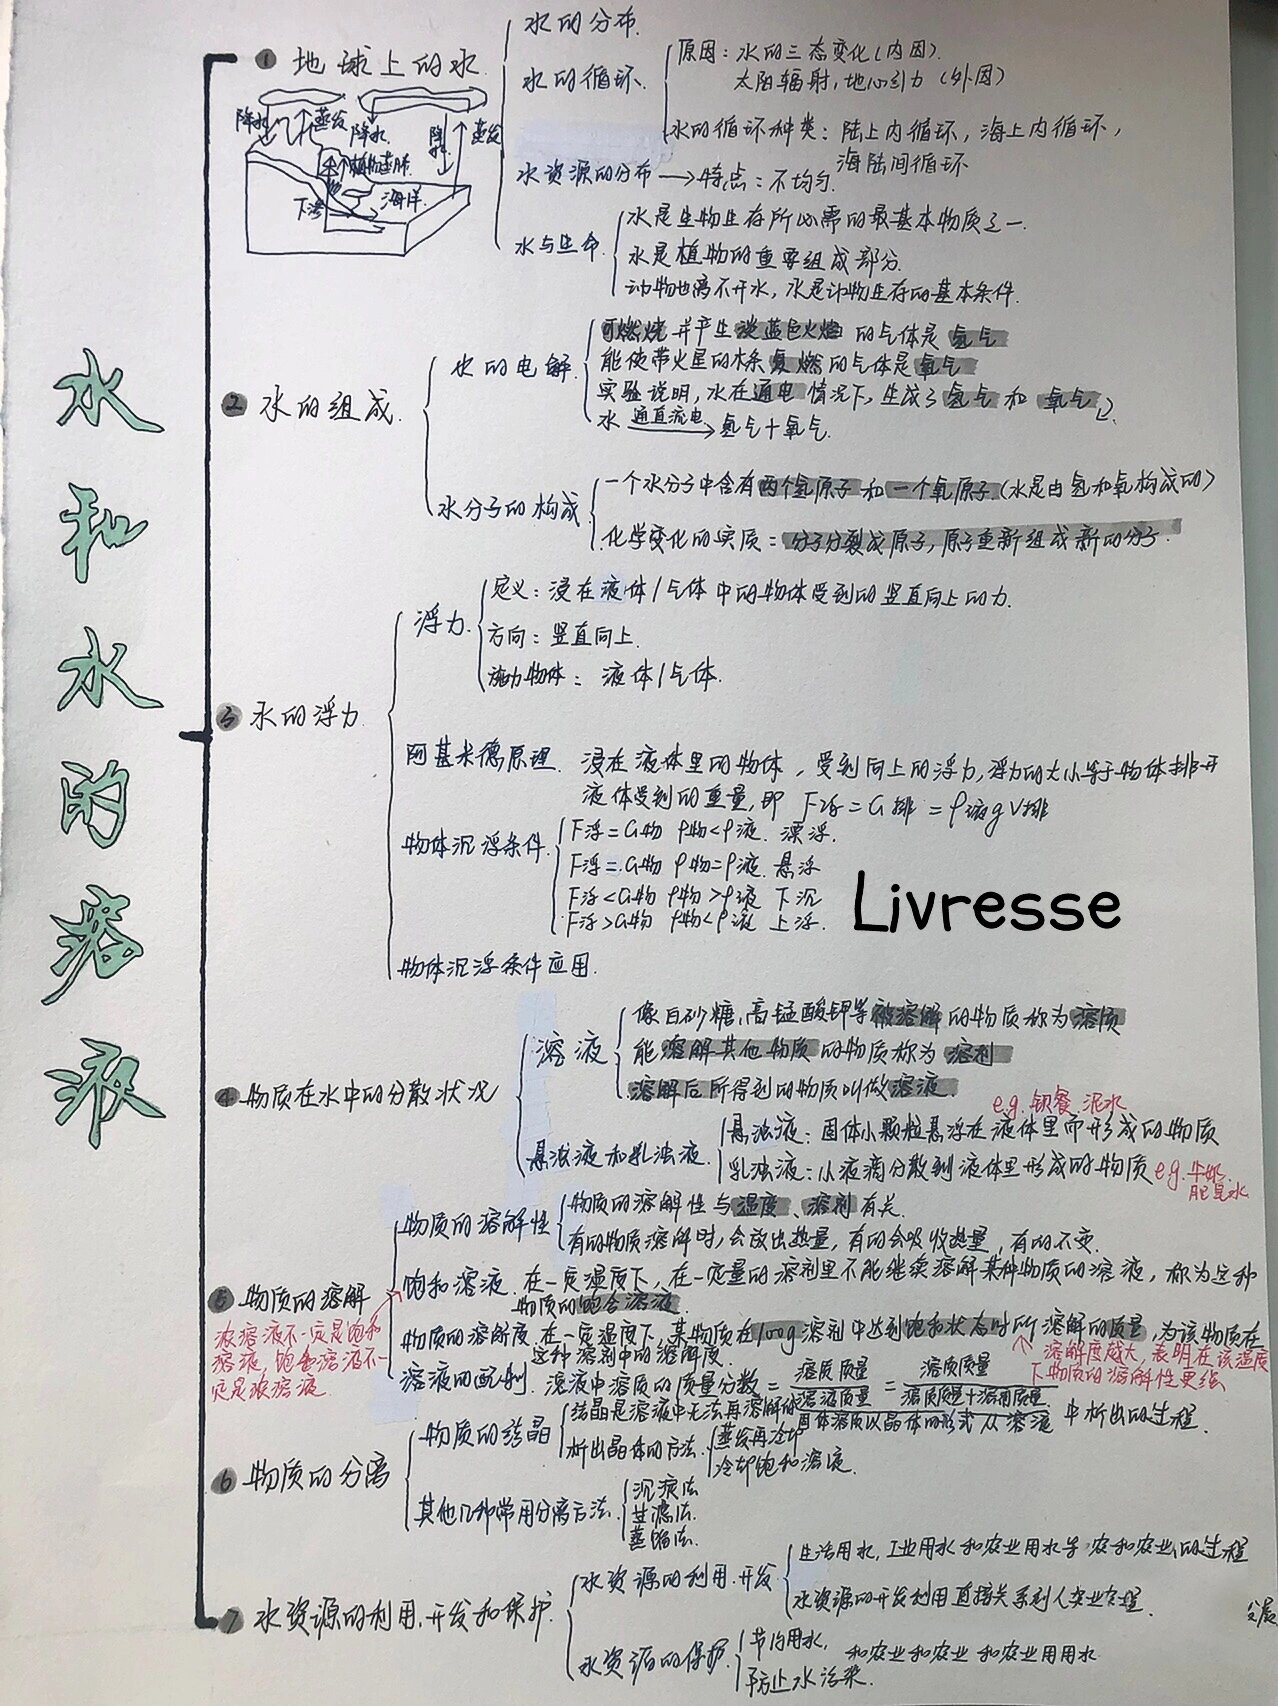 水和水的溶液
① 地球上的水
降水 蒸发 降水 降水 蒸发
植物蒸腾
下渗 海洋
水的分布
水的循环
原因：水的三态变化（内因）
太阳辐射，地心引力（外因）
水的循环种类：陆上内循环，海上内循环，
海陆间循环
水资源的分布→特点：不均匀.
水与生命
水是生物生存所必需的最基本物质之一
水是植物的重要组成部分
动物也离不开水，水是动物生存的基本条件.
② 水的组成.
水的电解
可燃烧并产生淡蓝色火焰的气体是氢气
能使带火星的木条复燃的气体是氧气
实验说明，水在通电情况下，生成了氢气和氧气
水 通直流电→ 氢气+氧气.
水分子的构成
一个水分子中含有两个氢原子和一个氧原子.(水是由氢和氧构成的)
化学变化的实质：分子分裂成原子，原子重新组成新的分子.
③ 水的浮力
浮力
定义：浸在液体/气体中的物体受到的竖直向上的力.
方向：竖直向上.
施力物体：液体/气体.
阿基米德原理. 浸在液体里的物体，受到向上的浮力，浮力的大小等于物体排开
液体受到的重量，即 F浮=G排=ρ液gV排
物体沉浮条件
F浮=G物 ρ物<ρ液. 漂浮.
F浮=G物 ρ物=ρ液. 悬浮
F浮<G物 ρ物>ρ液 下沉
F浮>G物 ρ物<ρ液 上浮.
Livresse
物体沉浮条件应用.
④ 物质在水中的分散状况
溶液
像白砂糖、高锰酸钾等被溶解的物质称为溶质
能溶解其他物质的物质称为溶剂
溶解后所得到的物质叫做溶液.
悬浊液和乳浊液.
e.g. 钡餐 泥水
悬浊液：固体小颗粒悬浮在液体里而形成的物质
乳浊液：小液滴分散到液体里形成的物质 e.g. 牛奶.
肥皂水
⑤ 物质的溶解
浓溶液不一定是饱和
溶液，饱和溶液不一
定是浓溶液.
物质的溶解性
物质的溶解性与温度、溶剂有关.
有的物质溶解时，会放出热量，有的会吸收热量，有的不变.
饱和溶液. 在一定温度下，在一定量的溶剂里不能继续溶解某种物质的溶液，称为这种
物质的饱和溶液.
物质的溶解度. 在一定温度下，某物质在100g溶剂中达到饱和状态时所溶解的质量，为该物质在
这种溶剂中的溶解度.
溶解度越大，表明在该温度
下物质的溶解性更强
溶液的配制. 溶液中溶质的质量分数 = 溶质质量/溶液质量 = 溶质质量/溶质质量+溶剂质量
⑥ 物质的分离
物质的结晶
结晶是溶液中无法再溶解的固体溶质以晶体的形式从溶液中析出的过程.
析出晶体的方法.
蒸发再冷却
冷却饱和溶液.
其他几种常用分离方法
沉淀法
过滤法.
蒸馏法.
⑦ 水资源的利用、开发和保护.
水资源的利用、开发
生活用水，工业用水和农业用水等 农和农业的过程
水资源的开发利用直接关系到人类
水资源的保护.
节约用水， 和农业和农业 和农业用用水
防止水污染.